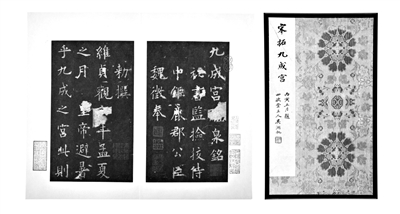 九成宮泉銘
監撿挍侍
中鉅鹿郡公臣
魏徵奉
勑撰
維貞觀年孟夏
之月皇帝避暑
乎九成之宮此則
宋拓九成宮